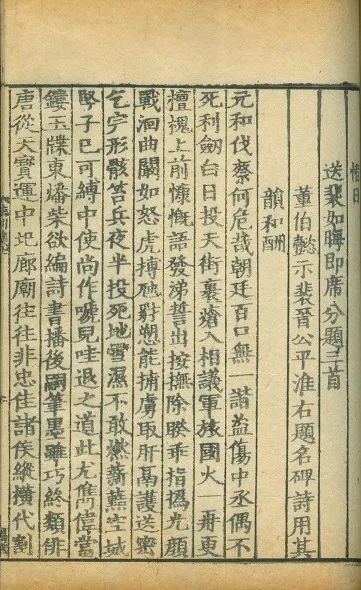 送裴如晦即席分題三首
董伯懿示裴晉公平淮右題名碑詩用其
韻和酬
元和伐蔡何危哉朝廷百口無一諧盜傷中丞偶不
死利劒白日投天街裹瘡入相議軍旅國火一再更
檀槐上前慷慨語發涕誓出按撫除睽乖指撝光顔
戰洄曲闞如怒虎搏虺豺愬能捕虜取肝鬲護送密
乞完形骸笞兵夜半投死地雪濕不敢燃薪藍空城
竪子已可縛中使尚作嚘咿哇退之道此尤雋偉當
鏤玉牒東燔柴欲編詩書播後嗣筆墨雖巧終類俳
唐從天寶運中圮廊廟往往非忠佳諸侯縱橫代割